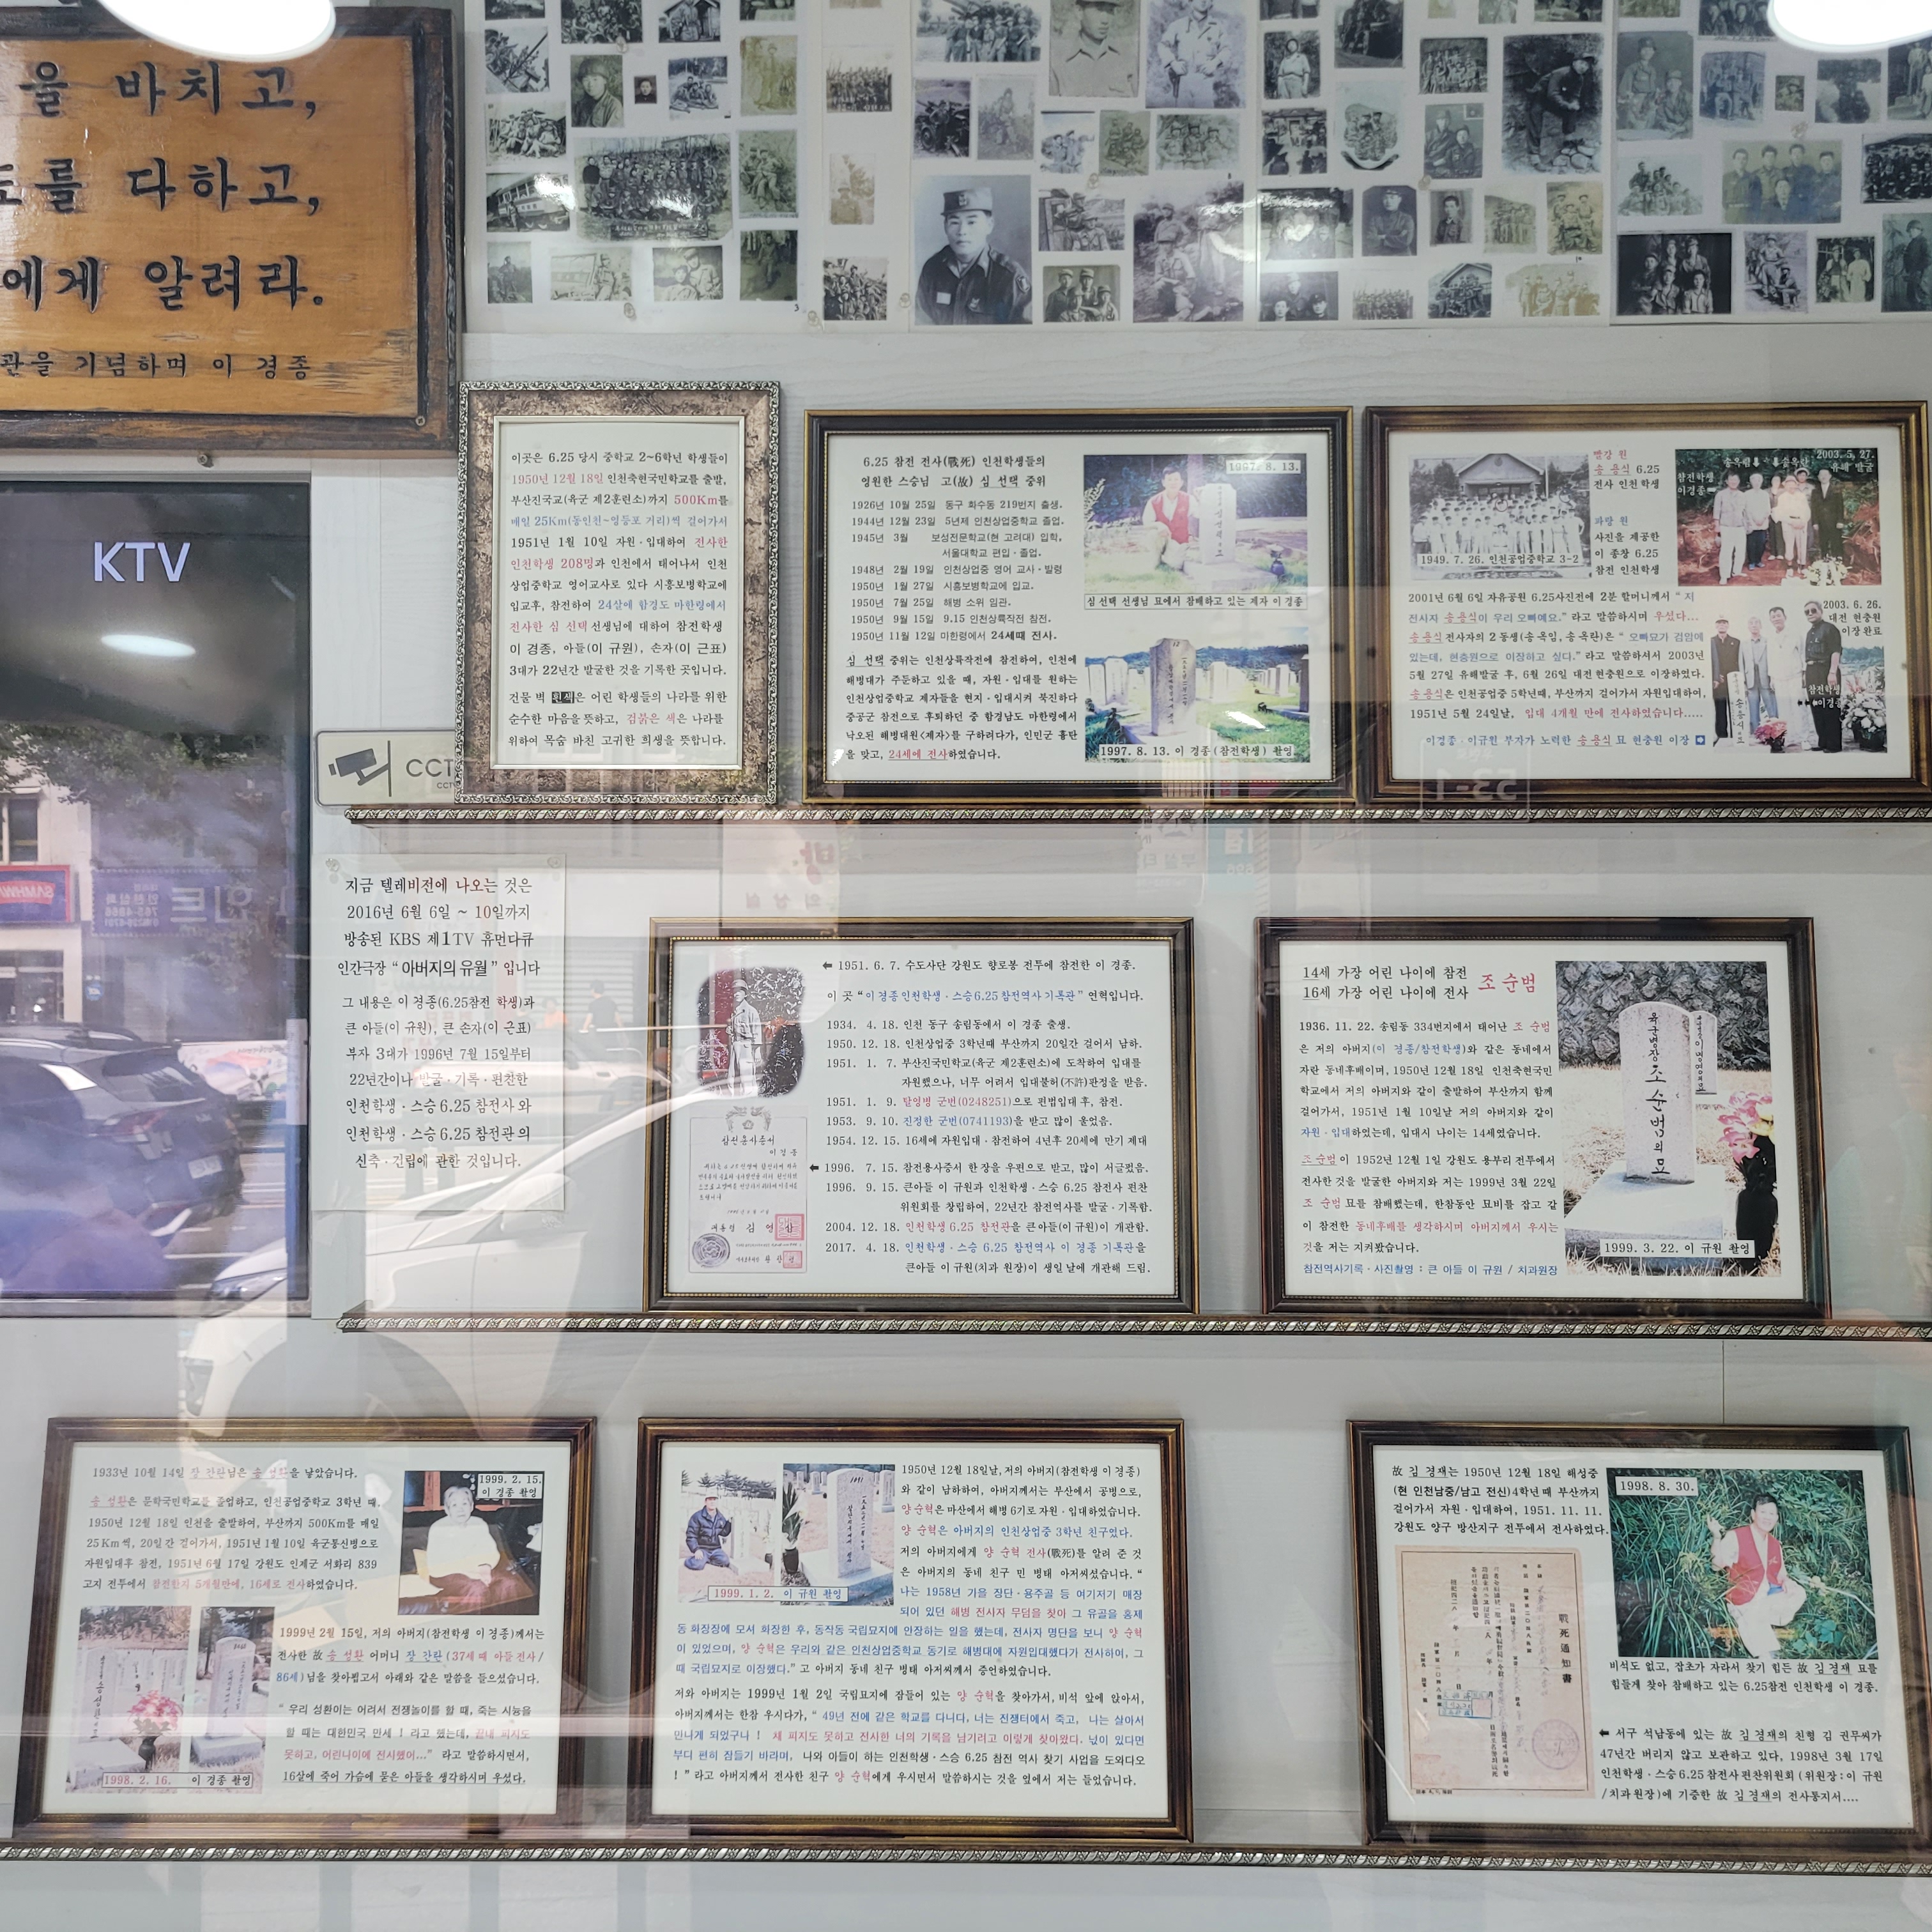 을 바치고,
도를 다하고,
에게 알려라.
관을 기념하며 이 경종
KTV
CCT
이곳은 6.25 당시 중학교 2~6학년 학생들이
1950년 12월 18일 인천축현국민학교를 출발,
부산진국교(육군 제2훈련소)까지 500Km를
매일 25Km(동인천~영등포 거리)씩 걸어가서
1951년 1월 10일 자원·입대하여 전사한
인천학생 208명과 인천에서 태어나서 인천
상업중학교 영어교사로 있다 시흥보병학교에
입교후, 참전하여 24살에 함경도 마한령에서
전사한 심 선택 선생님에 대하여 참전학생
이 경종, 아들(이 규원), 손자(이 근표)
3대가 22년간 발굴한 것을 기록한 곳입니다.
건물 벽 흰색은 어린 학생들의 나라를 위한
순수한 마음을 뜻하고, 검붉은 색은 나라를
위하여 목숨 바친 고귀한 희생을 뜻합니다.
6.25 참전 전사(戰死) 인천학생들의
영원한 스승님 고(故) 심 선택 중위
1926년 10월 25일 동구 화수동 219번지 출생.
1944년 12월 23일 5년제 인천상업중학교 졸업.
1945년 3월 보성전문학교(현 고려대) 입학.
서울대학교 편입·졸업.
1948년 2월 19일 인천상업중 영어 교사·발령
1950년 1월 27일 시흥보병학교에 입교.
1950년 7월 25일 해병 소위 임관.
1950년 9월 15일 9.15 인천상륙작전 참전.
1950년 11월 12일 마한령에서 24세때 전사.
심 선택 중위는 인천상륙작전에 참전하여, 인천에
해병대가 주둔하고 있을 때, 자원·입대를 원하는
인천상업중학교 제자들을 현지·입대시켜 북진하다
중공군 참전으로 후퇴하던 중 함경남도 마한령에서
낙오된 해병대원<제자>를 구하려다가, 인민군 흉탄
을 맞고, 24세에 전사하였습니다.
1997. 8. 13.
심 선택 선생님 묘에서 참배하고 있는 제자 이 경종
1997. 8. 13. 이 경종(참전학생) 촬영
1949. 7. 26. 인천공업중학교 3-2
빨강 원
송 용식 6.25
전사 인천학생
파랑 원
사진을 제공한
이 종창 6.25
참전 인천학생
송옥림 송옥란
2003. 5. 27.
유해 발굴
참전학생
이경종
2001년 6월 6일 자유공원 6.25사진전에 2분 할머니께서 " 저
전사자 송 용식이 우리 오빠예요." 라고 말씀하시며 우셨다...
송 용식 전사자의 2 동생(송 옥임, 송 옥란)은 " 오빠묘가 검암에
있는데, 현충원으로 이장하고 싶다." 라고 말씀하셔서 2003년
5월 27일 유해발굴 후, 6월 26일 대전 현충원으로 이장하였다.
송 용식은 인천공업중 5학년때, 부산까지 걸어가서 자원입대하여,
1951년 5월 24일날, 입대 4개월 만에 전사하였습니다.....
이경종·이규원 부자가 노력한 송 용식 묘 현충원 이장
2003. 6. 26.
대전 현충원
이장 완료
참전학생
이경종
지금 텔레비전에 나오는 것은
2016년 6월 6일 ~ 10일까지
방송된 KBS 제1TV 휴먼다큐
인간극장 " 아버지의 유월 " 입니다
그 내용은 이 경종(6.25참전 학생)과
큰 아들(이 규원), 큰 손자(이 근표)
부자 3대가 1996년 7월 15일부터
22년간이나 발굴·기록·편찬한
인천학생·스승 6.25 참전사와
인천학생·스승 6.25 참전관의
신축·건립에 관한 것입니다.
1951. 6. 7. 수도사단 강원도 향로봉 전투에 참전한 이 경종.
이 곳 " 이 경종 인천학생·스승 6.25 참전역사 기록관 " 연혁입니다.
1934. 4. 18. 인천 동구 송림동에서 이 경종 출생.
1950. 12. 18. 인천상업중 3학년때 부산까지 20일간 걸어서 남하.
1951. 1. 7. 부산진국민학교(육군 제2훈련소)에 도착하여 입대를
자원했으나, 너무 어려서 입대불허(不許)판정을 받음.
1951. 1. 9. 탈영병 군번(0248251)으로 편법입대 후, 참전.
1953. 9. 10. 진정한 군번(0741193)을 받고 많이 울었음.
1954. 12. 15. 16세에 자원입대·참전하여 4년후 20세에 만기 제대
1996. 7. 15. 참전용사증서 한 장을 우편으로 받고, 많이 서글펐음.
1996. 9. 15. 큰아들 이 규원과 인천학생·스승 6.25 참전사 편찬
위원회를 창립하여, 22년간 참전역사를 발굴·기록함.
2004. 12. 18. 인천학생 6.25 참전관을 큰아들(이 규원)이 개관함.
2017. 4. 18. 인천학생·스승 6.25 참전역사 이 경종 기록관을
큰아들 이 규원(치과 원장)이 생일 날에 개관해 드림.
참전용사증서
이 경 종
대통령 김 영 삼
14세 가장 어린 나이에 참전
16세 가장 어린 나이에 전사 조 순범
1936. 11. 22. 송림동 334번지에서 태어난 조 순범
은 저의 아버지(이 경종/참전학생)와 같은 동네에서
자란 동네후배이며, 1950년 12월 18일 인천축현국민
학교에서 저의 아버지와 같이 출발하여 부산까지 함께
걸어가서, 1951년 1월 10일날 저의 아버지와 같이
자원·입대하였는데, 입대시 나이는 14세였습니다.
조 순범이 1952년 12월 1일 강원도 용부리 전투에서
전사한 것을 발굴한 아버지와 저는 1999년 3월 22일
조 순범 묘를 참배했는데, 한참동안 묘비를 잡고 같
이 참전한 동네후배를 생각하시며 아버지께서 우시는
것을 저는 지켜봤습니다.
참전역사기록·사진촬영 : 큰 아들 이 규원 / 치과원장
육군병장조순범의묘
1999. 3. 22. 이 규원 촬영
1933년 10월 14일 장 간란님은 송 성환을 낳았습니다.
송 성환은 문학국민학교를 졸업하고, 인천공업중학교 3학년 때,
1950년 12월 18일 인천을 출발하여, 부산까지 500Km를 매일
25Km씩, 20일간 걸어가서, 1951년 1월 10일 육군통신병으로
자원입대후 참전, 1951년 6월 17일 강원도 인제군 서화리 839
고지 전투에서 참전한지 5개월만에, 16세로 전사하였습니다.
1999. 2. 15.
이 경종 촬영
1998. 2. 16. 이 경종 촬영
1999년 2월 15일, 저의 아버지(참전학생 이 경종)께서는
전사한 故 송 성환 어머니 장 간란 (37세 때 아들 전사/
86세)님을 찾아뵙고서 아래와 같은 말씀을 들으셨습니다.
" 우리 성환이는 어려서 전쟁놀이를 할 때, 죽는 시늉을
할 때는 대한민국 만세 ! 라고 했는데, 끝내 피지도
못하고, 어린나이에 전사했어..." 라고 말씀하시면서,
16살에 죽어 가슴에 묻은 아들을 생각하시며 우셨다.
1999. 1. 2. 이 규원 촬영
1950년 12월 18일날, 저의 아버지(참전학생 이 경종)
와 같이 남하하여, 아버지께서는 부산에서 공병으로,
양 순혁은 마산에서 해병 6기로 자원·입대하였습니다.
양 순혁은 아버지의 인천상업중 3학년 친구였다.
저의 아버지에게 양 순혁 전사(戰死)를 알려 준 것
은 아버지의 동네 친구 민 병태 아저씨셨습니다. "
나는 1958년 가을 장단·용주골 등 여기저기 매장
되어 있던 해병 전사자 무덤을 찾아 그 유골을 홍제
동 화장장에 모셔 화장한 후, 동작동 국립묘지에 안장하는 일을 했는데, 전사자 명단을 보니 양 순혁
이 있었으며, 양 순혁은 우리와 같은 인천상업중학교 동기로 해병대에 자원입대했다가 전사하여, 그
때 국립묘지로 이장했다." 고 아버지 동네 친구 병태 아저씨께서 증언하였습니다.
저와 아버지는 1999년 1월 2일 국립묘지에 잠들어 있는 양 순혁을 찾아가서, 비석 앞에 앉아서,
아버지께서는 한참 우시다가, " 49년 전에 같은 학교를 다니다, 너는 전쟁터에서 죽고, 나는 살아서
만나게 되었구나 ! 채 피지도 못하고 전사한 너의 기록을 남기려고 이렇게 찾아왔다. 넋이 있다면
부디 편히 잠들기 바라며, 나와 아들이 하는 인천학생·스승 6.25 참전 역사 찾기 사업을 도와다오
! " 라고 아버지께서 전사한 친구 양 순혁에게 우시면서 말씀하시는 것을 옆에서 저는 들었습니다.
故 김 경재는 1950년 12월 18일 해성중
(현 인천남중/남고 전신)4학년때 부산까지
걸어가서 자원·입대하여, 1951. 11. 11.
강원도 양구 방산지구 전투에서 전사하였다.
1998. 8. 30.
戰死通知書
비석도 없고, 잡초가 자라서 찾기 힘든 故 김 경재 묘를
힘들게 찾아 참배하고 있는 6.25참전 인천학생 이 경종.
서구 석남동에 있는 故 김 경재의 친형 김 권무씨가
47년간 버리지 않고 보관하고 있다, 1998년 3월 17일
인천학생·스승 6.25 참전사 편찬위원회 (위원장 : 이 규원
/치과 원장)에 기증한 故 김 경재의 전사통지서....